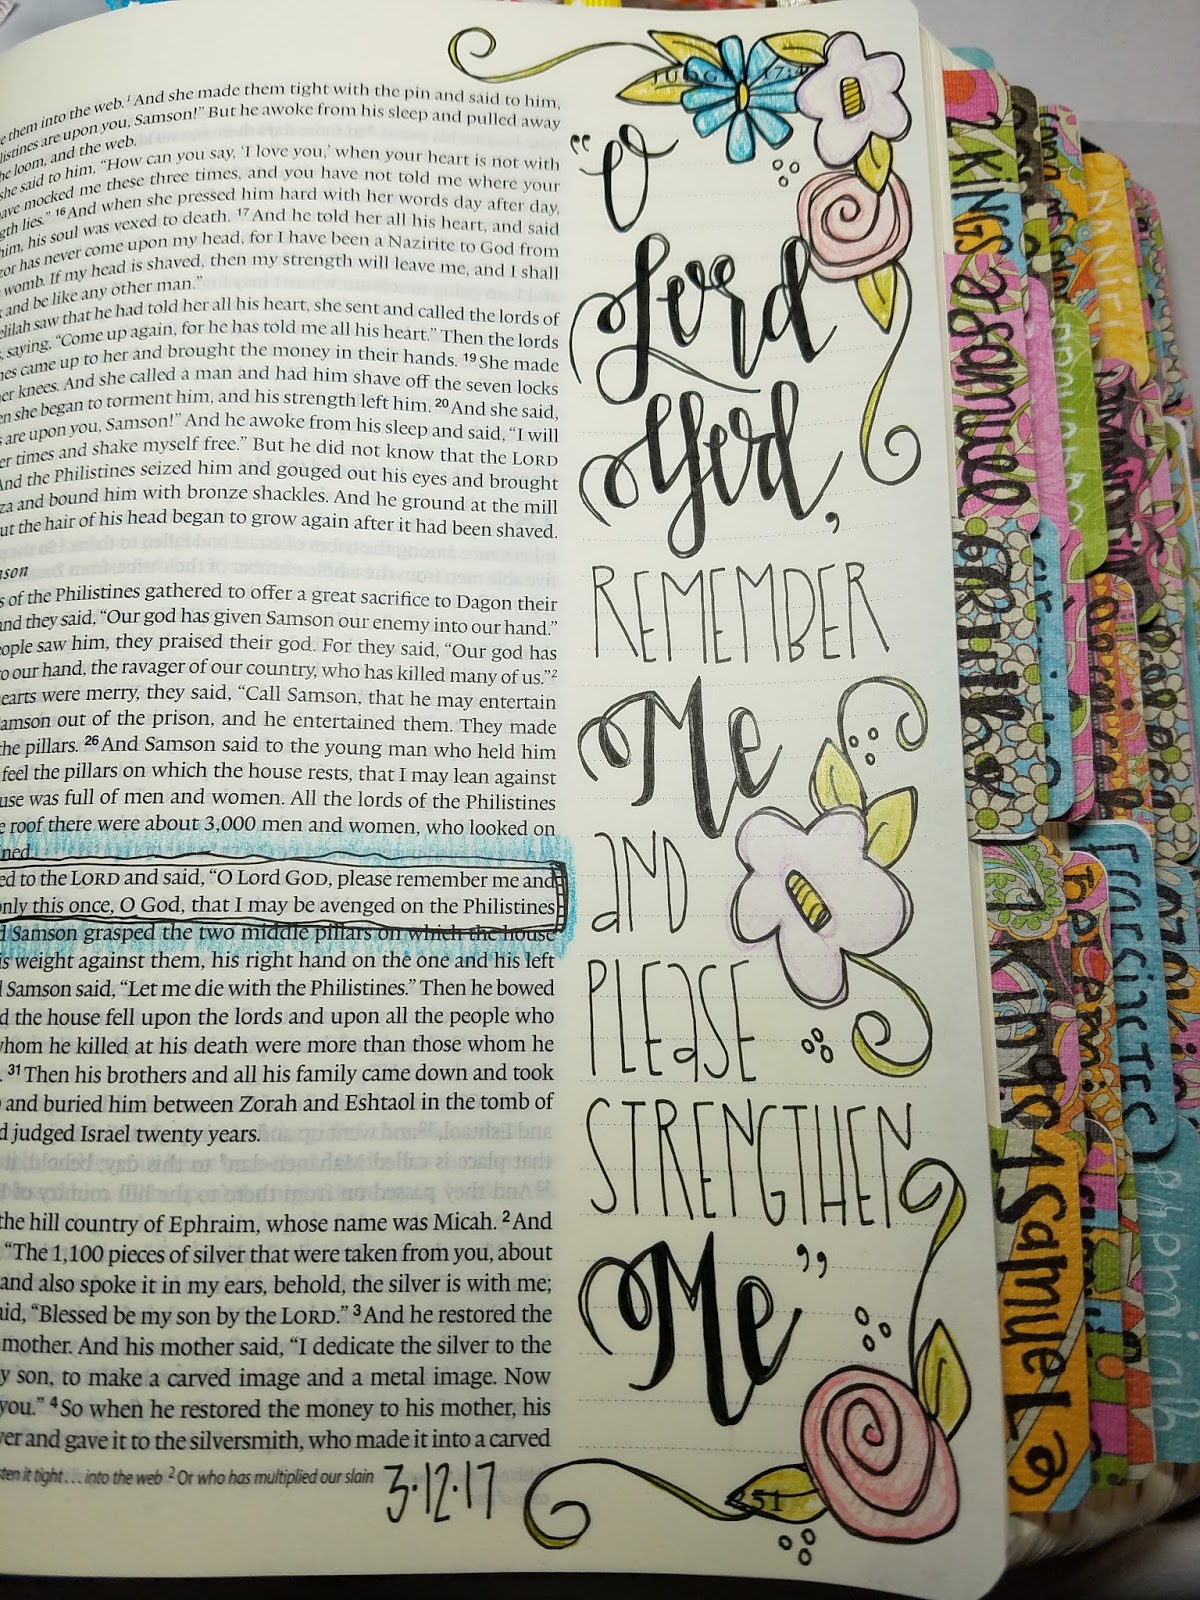 JUDGES 17:4
e them into the web.¹ And she made them tight with the pin and said to him,
listines are upon you, Samson!” But he awoke from his sleep and pulled away
he loom, and the web.
she said to him, “How can you say, ‘I love you,’ when your heart is not with
ave mocked me these three times, and you have not told me where your
gth lies.” 16 And when she pressed him hard with her words day after day,
him, his soul was vexed to death. 17 And he told her all his heart, and said
zor has never come upon my head, for I have been a Nazirite to God from
womb. If my head is shaved, then my strength will leave me, and I shall
and be like any other man.”
elilah saw that he had told her all his heart, she sent and called the lords of
, saying, “Come up again, for he has told me all his heart.” Then the lords
nes came up to her and brought the money in their hands. 19 She made
er knees. And she called a man and had him shave off the seven locks
en she began to torment him, and his strength left him. 20 And she said,
s are upon you, Samson!” And he awoke from his sleep and said, “I will
er times and shake myself free.” But he did not know that the LORD
And the Philistines seized him and gouged out his eyes and brought
za and bound him with bronze shackles. And he ground at the mill
ut the hair of his head began to grow again after it had been shaved.
nson
s of the Philistines gathered to offer a great sacrifice to Dagon their
and they said, “Our god has given Samson our enemy into our hand.”
eople saw him, they praised their god. For they said, “Our god has
o our hand, the ravager of our country, who has killed many of us.”²
earts were merry, they said, “Call Samson, that he may entertain
amson out of the prison, and he entertained them. They made
he pillars. 26 And Samson said to the young man who held him
feel the pillars on which the house rests, that I may lean against
use was full of men and women. All the lords of the Philistines
e roof there were about 3,000 men and women, who looked on
ned.
ed to the LORD and said, “O Lord GOD, please remember me and
only this once, O God, that I may be avenged on the Philistines
d Samson grasped the two middle pillars on which the house
is weight against them, his right hand on the one and his left
Samson said, “Let me die with the Philistines.” Then he bowed
d the house fell upon the lords and upon all the people who
whom he killed at his death were more than those whom he
. 31 Then his brothers and all his family came down and took
and buried him between Zorah and Eshtaol in the tomb of
d judged Israel twenty years.
the hill country of Ephraim, whose name was Micah. 2 And
“The 1,100 pieces of silver that were taken from you, about
and also spoke it in my ears, behold, the silver is with me;
aid, “Blessed be my son by the LORD.” 3 And he restored the
mother. And his mother said, “I dedicate the silver to the
y son, to make a carved image and a metal image. Now
you.” 4 So when he restored the money to his mother, his
ver and gave it to the silversmith, who made it into a carved
sten it tight… into the web ² Or who has multiplied our slain
3·12·17
251
“O
Lord
God,
REMEMBER
Me
AND
PLEASE
STRENGTHEN
Me”
1 KINGS
2 Samuel
1 Samuel
DANIEL